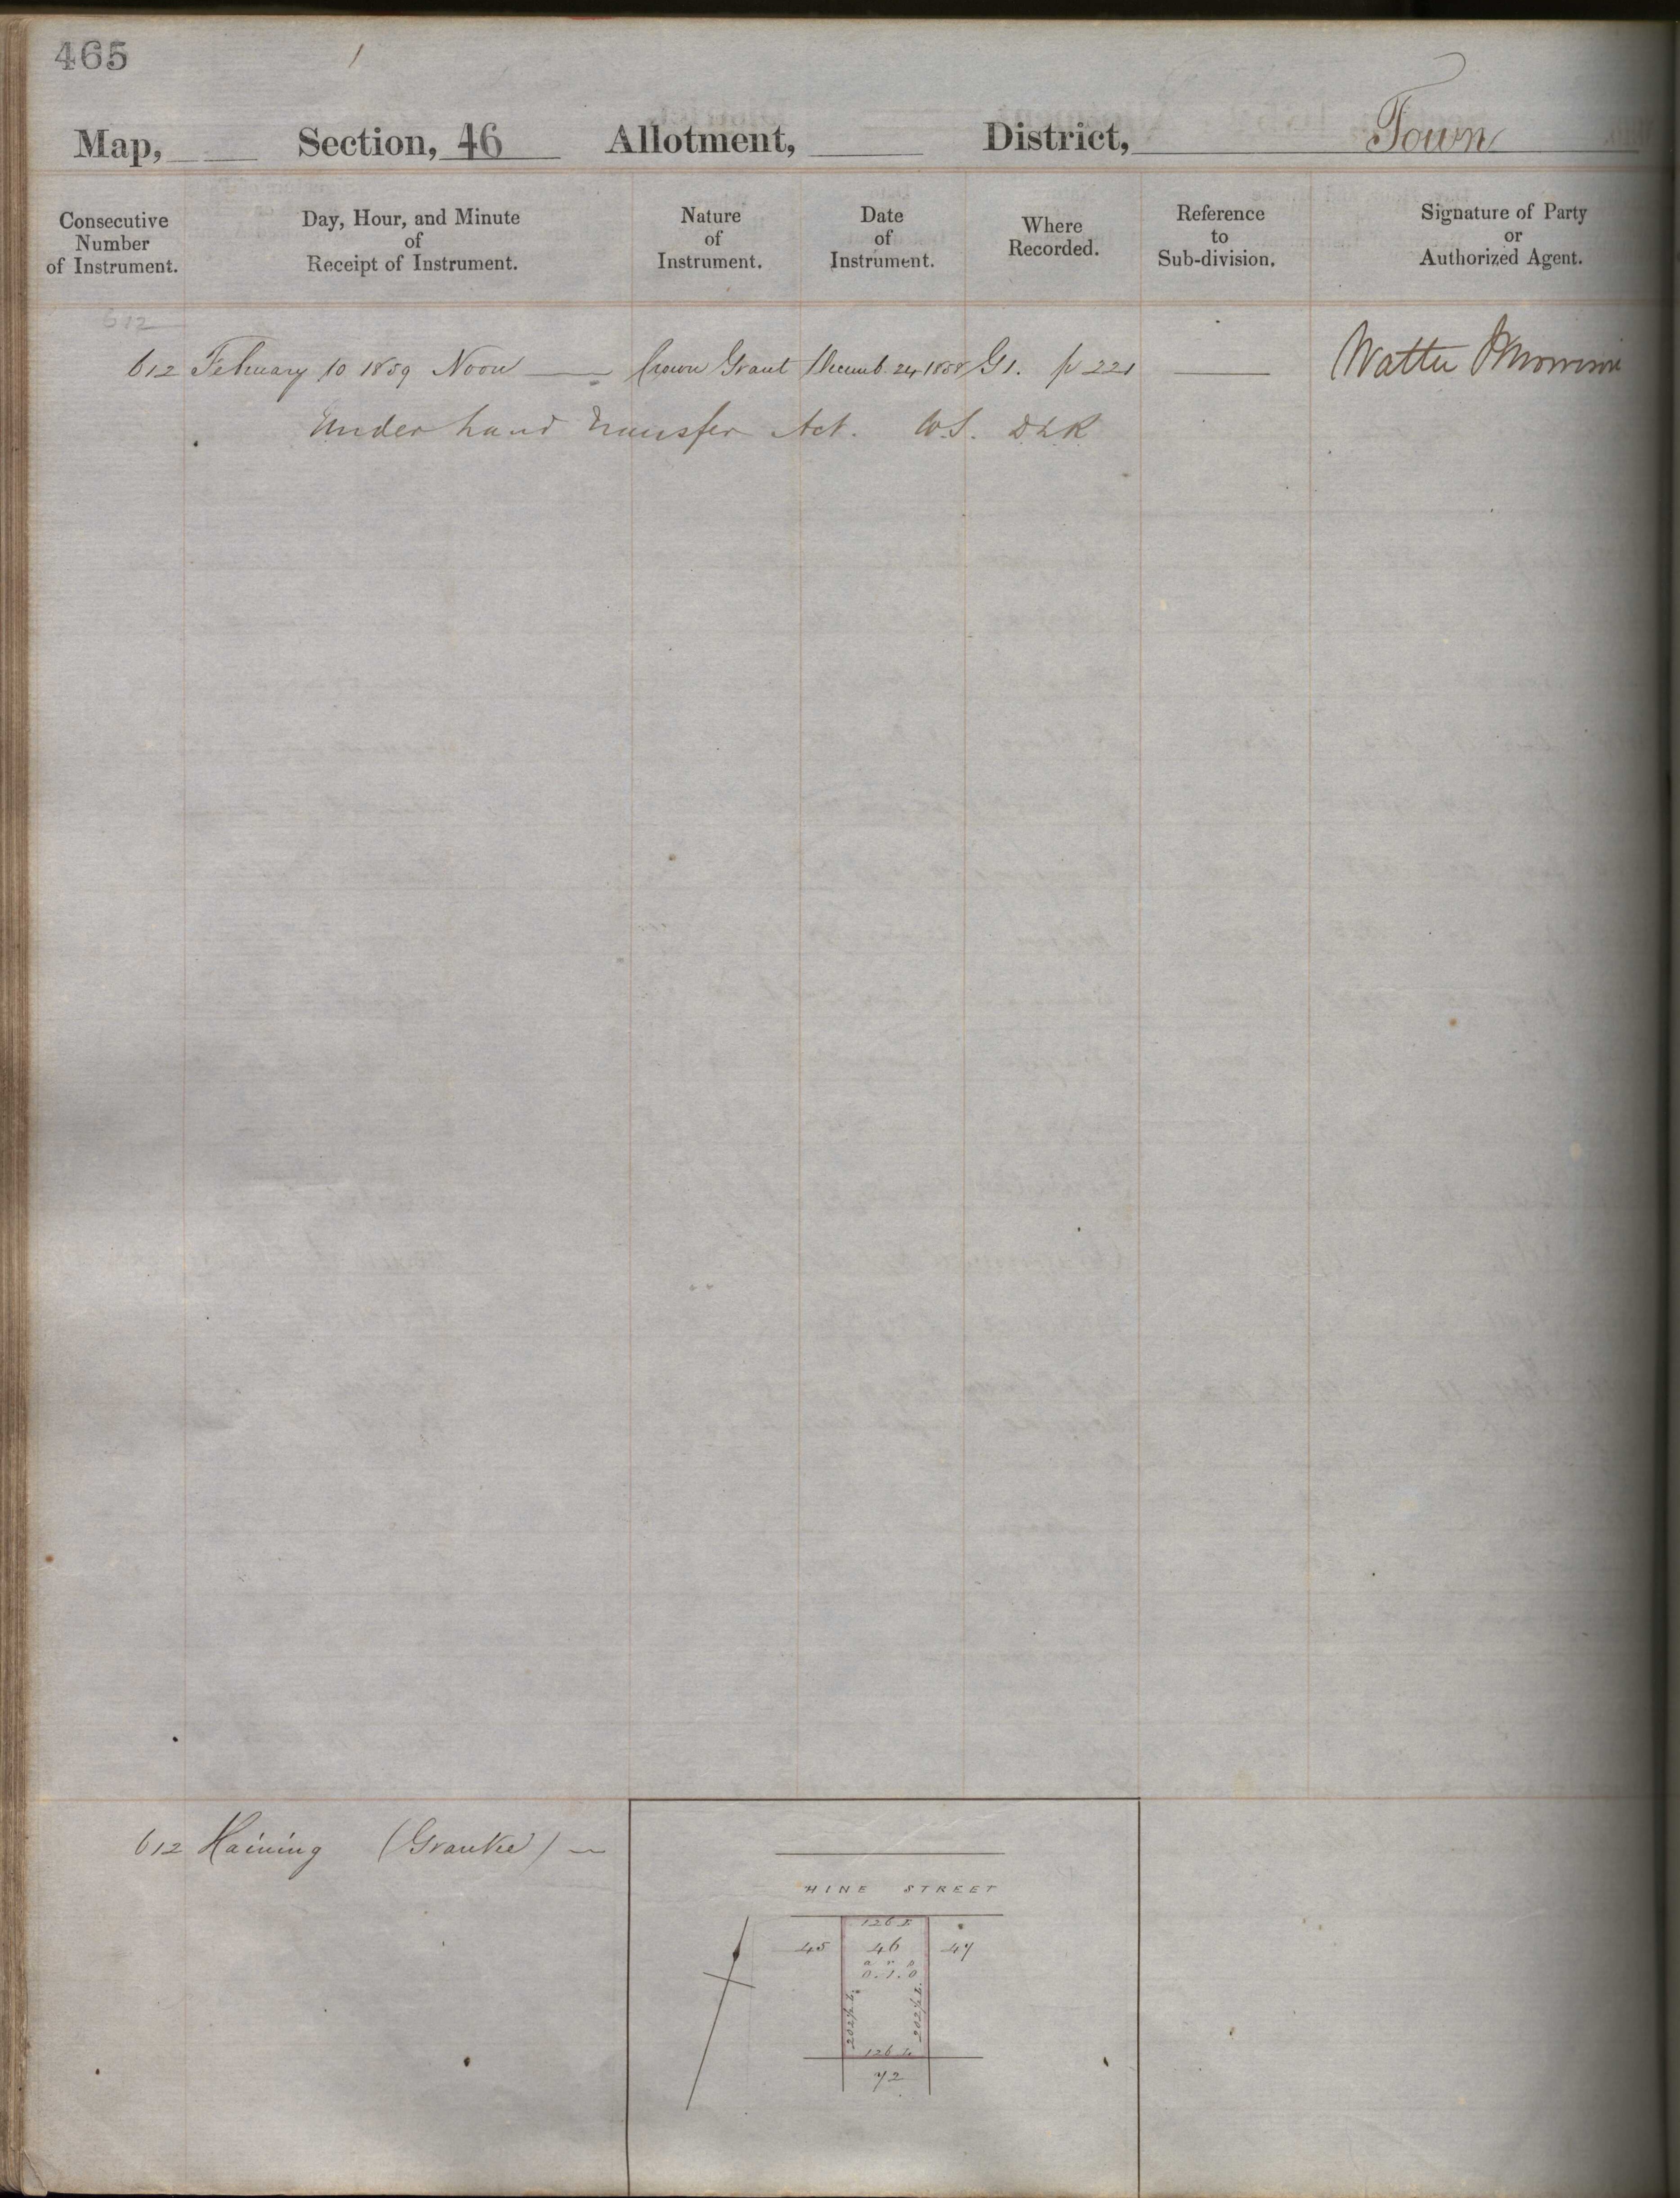 465
Map, Section, 46 Allotment, District, Town
Consecutive Number of Instrument.
Day, Hour, and Minute of Receipt of Instrument.
Nature of Instrument.
Date of Instrument.
Where Recorded.
Reference to Sub-division.
Signature of Party or Authorized Agent.
612
612 February 10 1859 Noon — Crown Grant Decemb. 24 1858 G1. p 221 — Walter
Under Land Transfer Act. W.S. DLR
612 Haining (Grantee) —
HINE STREET
126 L
45 46 47
a r p
0.1.0
202½ L.
202½ L.
126 L
72